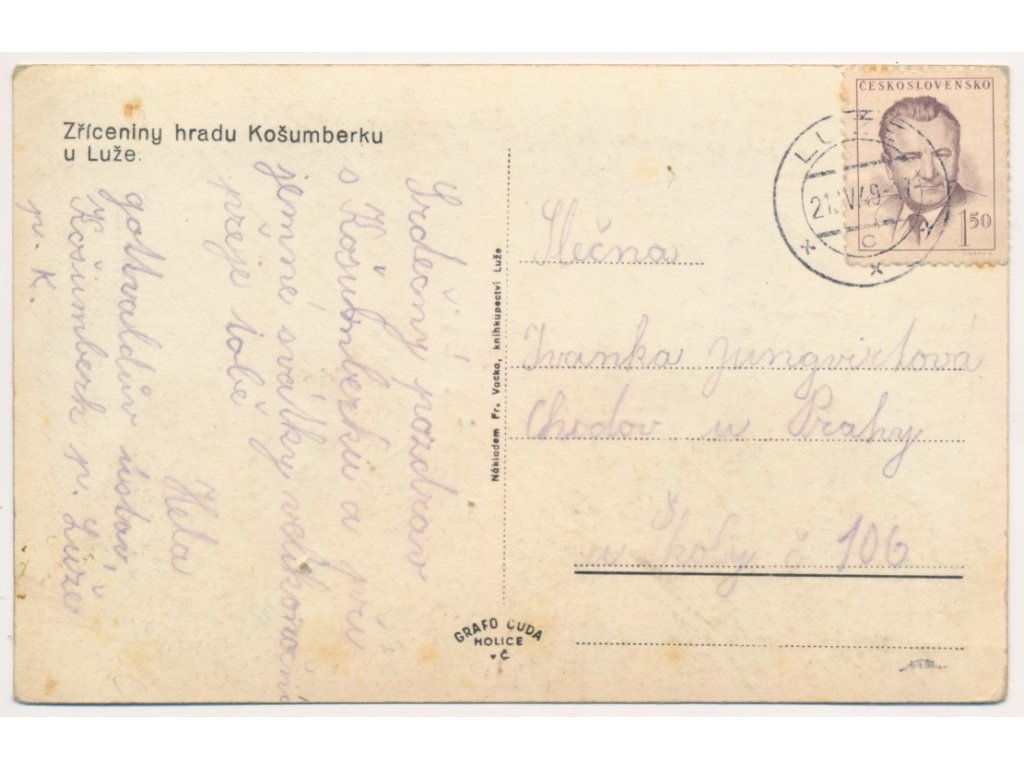 Zříceniny hradu Košumberku
u Luže.
Srdečný pozdrav
s Košumberku a pří
jemné svátky velikonoční
přeje tobě
Hela
gottvaldův ústav,
Košumberk p. Luže
p. K.
Nákladem Fr. Vacka, knihkupectví Luže
GRAFO ČUDA
HOLICE
v Č
ČESKOSLOVENSKO
1 50
LUŽE
21.IV.49
Slečna
Ivanka Jungvirtová
Chodov u Prahy
u Školy č 106